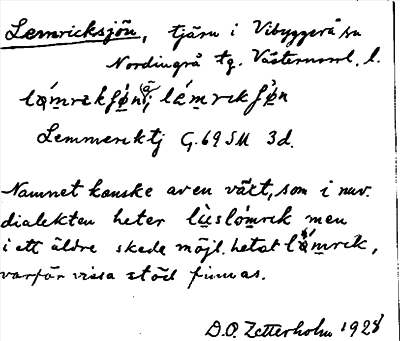 Lemricksjön, tjärn i Vibyggerå sn
Nordingrå tg. Västernorrl. l.
lǽmrɩkʃø̀n; lǽmrɩkʃø̀n
Lemmerektj G. 69 SM 3d.
Namnet kanske av en växt, som i nuv.
dialekten heter lùslómrɩk men
i ett äldre skede möjl. hetat lǽmrɩk,
varför vissa stöd finnas.
D.O. Zetterholm 1928